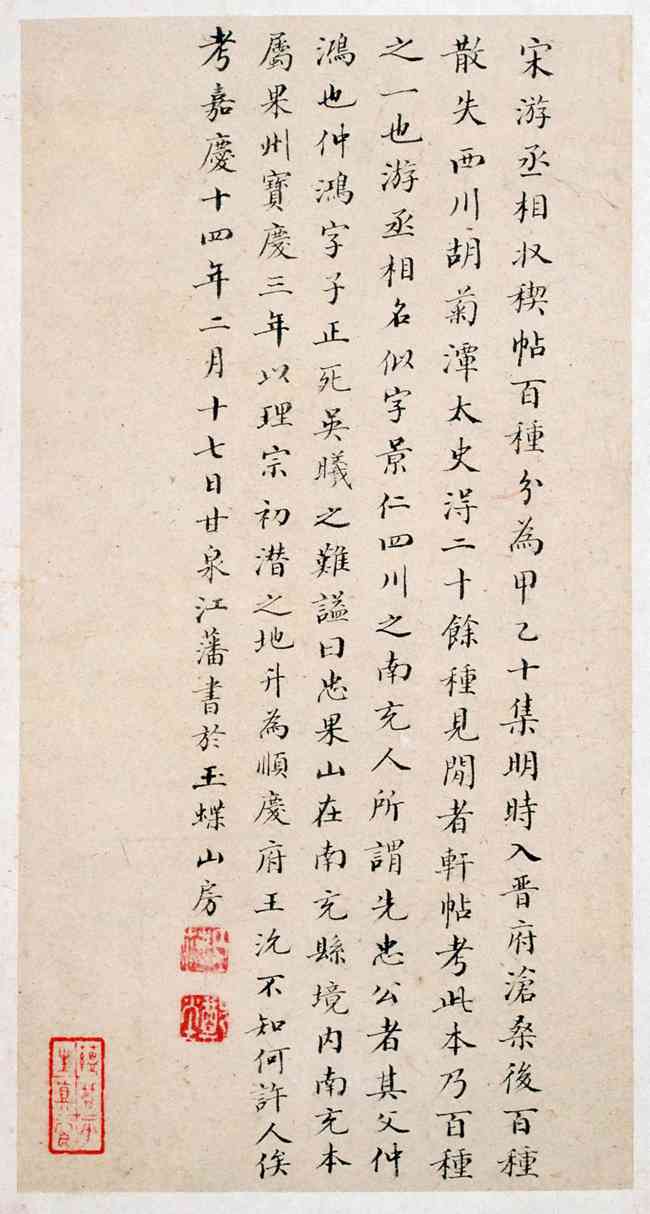 宋游丞相收稧帖百種分為甲乙十集明時入晋府滄桑後百種
散失西川胡菊潭太史淂二十餘種見閒者軒帖考此本乃百種
之一也游丞相名似字景仁四川之南充人所謂先忠公者其父仲
鴻也仲鴻字子正死吳曦之難謚曰忠果山在南充縣境内南充本
屬果州寶慶三年以理宗初潜之地升為順慶府王沇不知何許人俟
考嘉慶十四年二月十七日甘泉江藩書於玉蝶山房